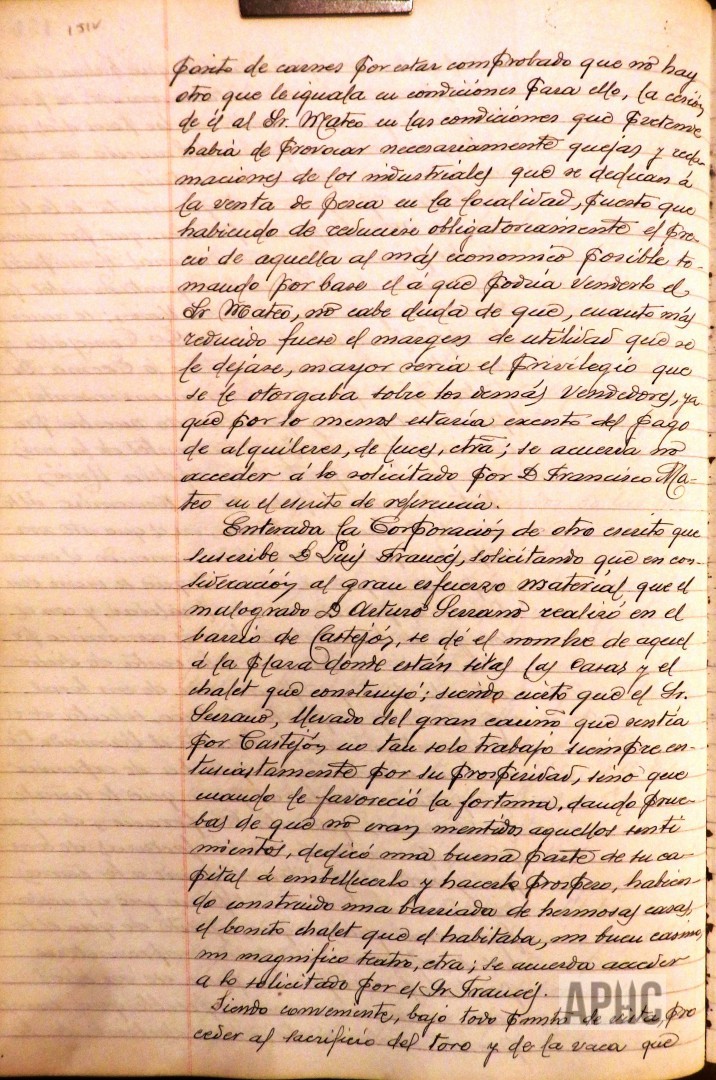 151v
posito de carnes por estar comprobado que no hay
otro que le iguala en condiciones para ello, la cesión
de él al Sr. Mateo en las condiciones que pretende
había de provocar necesariamente quejas y recla-
maciones de los industriales que se dedican á
la venta de pesca en la localidad, puesto que
habiendo de reducirse obligatoriamente el pre-
cio de aquella al más economico posible to-
mando por base el á que podría venderlo el
Sr Mateo, no cabe duda de que, cuanto más
reducido fuese el margen de utilidad que se
le dejáse, mayor sería el privilegio que
se le otorgaba sobre los demás vendedores, ya
que por lo menos estaría excento del pago
de alquileres, de luces, etrá; se acuerda no
acceder á lo solicitado por D Francisco Ma-
teo en el escrito de referencia.
Enterada la Corporación de otro escrito que
suscribe D Luis Francés, solicitando que en con-
sideración al gran esfuerzo material que el
malogrado D Arturo Serrano realizó en el
barrio de Castejón, se dé el nombre de aquel
á la plaza donde están sitas las casas y el
chalét que construyó; siendo cierto que el Sr.
Serrano, llevado del gran cariño que sentía
por Castejón no tan solo trabajó siempre en-
tusiastamente por su prosperidad, sino que
cuando le favoreció la fortuna, dando prue-
bas de que no eran mentidos aquellos senti
mientos, dedicó una buena parte de su ca-
pital á embellecerlo y hacerlo prospero, habien-
do construido una barriada de hermosas casas,
el bonito chalet que el habitaba, un buen casino,
un magnifico teatro, etra; se acuerda acceder
a lo solicitado por el Sr Francés.
Siendo conveniente, bajo todo punto de vista, pro
ceder al sacrificio del toro y de la vaca que
APHC